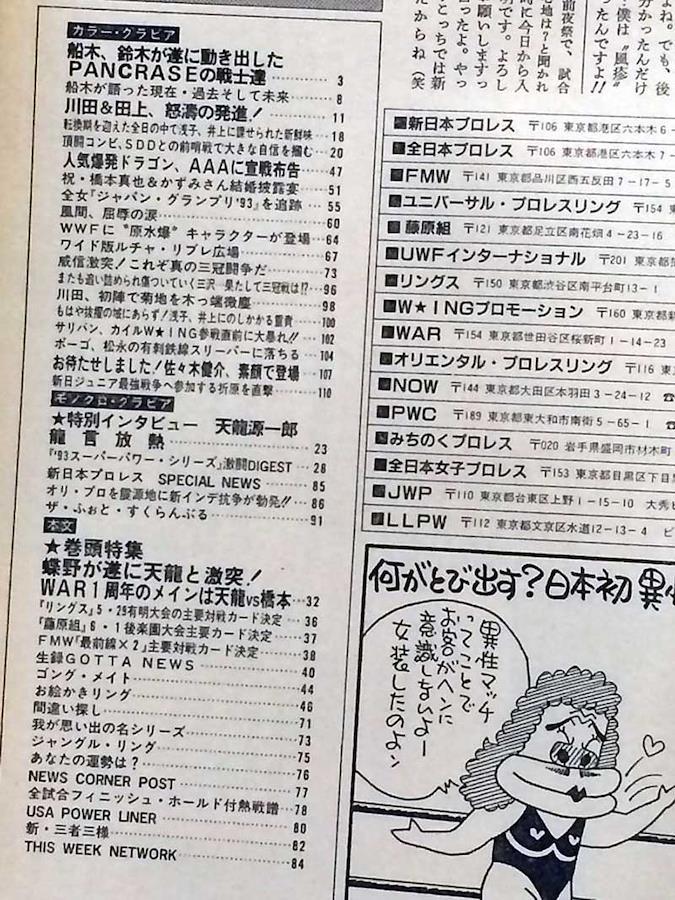 カラー・グラビア
船木、鈴木が遂に動き出した
PANCRASEの戦士達 3
船木が語った現在・過去そして未来 8
川田&田上、怒濤の発進! 11
転換期を迎えた全日の中で浅子、井上に課せられた新鮮味 18
頂開コンビ、SDDとの前哨戦で大きな自信を掴む 20
人気爆発ドラゴン、AAAに宣戦布告 47
祝・橋本真也&かずみさん結婚披露宴 51
全女『ジャパン・グランプリ'93』を追跡 55
風間、屈辱の涙 60
WWFに〝原水爆〟キャラクターが登場 64
ワイド版ルチャ・リブレ広場 67
威信激突!これぞ真の三冠闘争だ 73
またも追い詰められ傷ついていく三沢…果たして三冠戦は!? 96
川田、初陣で菊地を木っ端微塵 98
もはや抜擢の域にあらず!浅子、井上にのしかかる重責 100
サリバン、カイルW★ING参戦直前に大暴れ!! 102
ポーゴ、松永の有刺鉄線スリーパーに落ちる 104
お待たせしました!佐々木健介、素顔で登場 107
新日ジュニア最強戦争へ参加する折原を直撃 110
モノクロ・グラビア
★特別インタビュー 天龍源一郎
龍言放熱 23
『'93スーパーパワー・シリーズ』激闘DIGEST 28
新日本プロレス SPECIAL NEWS 85
オリ・プロを震源地に新インデ抗争が勃発!! 86
ザ・ふぉと・すくらんぶる 91
本文
★巻頭特集
蝶野が遂に天龍と激突!
WAR1周年のメインは天龍vs橋本 32
『リングス』5・29有明大会の主要対戦カード決定 36
『藤原組』6・1後楽園大会主要カード決定 37
FMW『最前線×2』主要対戦カード決定 38
生録GOTTA NEWS 40
ゴング・メイト 44
お絵かきリング 46
間違い探し 71
我が思い出の名シリーズ 73
ジャングル・リング 75
あなたの運勢は? 76
NEWS CORNER POST 77
全試合フィニッシュ・ホールド付熱戦譜 78
USA POWER LINER 80
新・三者三様 82
THIS WEEK NETWORK 84
よね。でも、後
分かったんだけ
僕は〝風疹〟
ったんですよ!!
前夜祭で、試合
地は?と聞かれ
時に今日から入
明です。よろし
お願いしますっ
言ったよ。やっ
こっちでは新
だからね(笑
■新日本プロレス 〒106 東京都港区六本木6-
■全日本プロレス 〒106 東京都港区六本木7-
■FMW 〒141 東京都品川区西五反田7-17-5
■ユニバーサル・プロレスリング 〒154
■藤原組 〒121 東京都足立区南花畑4-23-16
■UWFインターナショナル 〒201 東京都
■リングス 〒150 東京都渋谷区南平台町13-1
■W★INGプロモーション 〒160 東京都新
■WAR 〒154 東京都世田谷区桜新町1-14-23
■オリエンタル・プロレスリング 〒116
■NOW 〒144 東京都大田区本羽田3-24-12 ☎
■PWC 〒189 東京都東大和市南街5-65-1
■みちのくプロレス 〒020 岩手県盛岡市材木町
■全日本女子プロレス 〒153 東京都目黒区下目黒
■JWP 〒110 東京都台東区上野1-15-10 大秀ビ
■LLPW 〒112 東京都文京区水道12-13-4 ビ
何がとび出す?日本初 異性
異性マッチ
ってことで
お客がヘンに
意識しないよー
女装したのよン